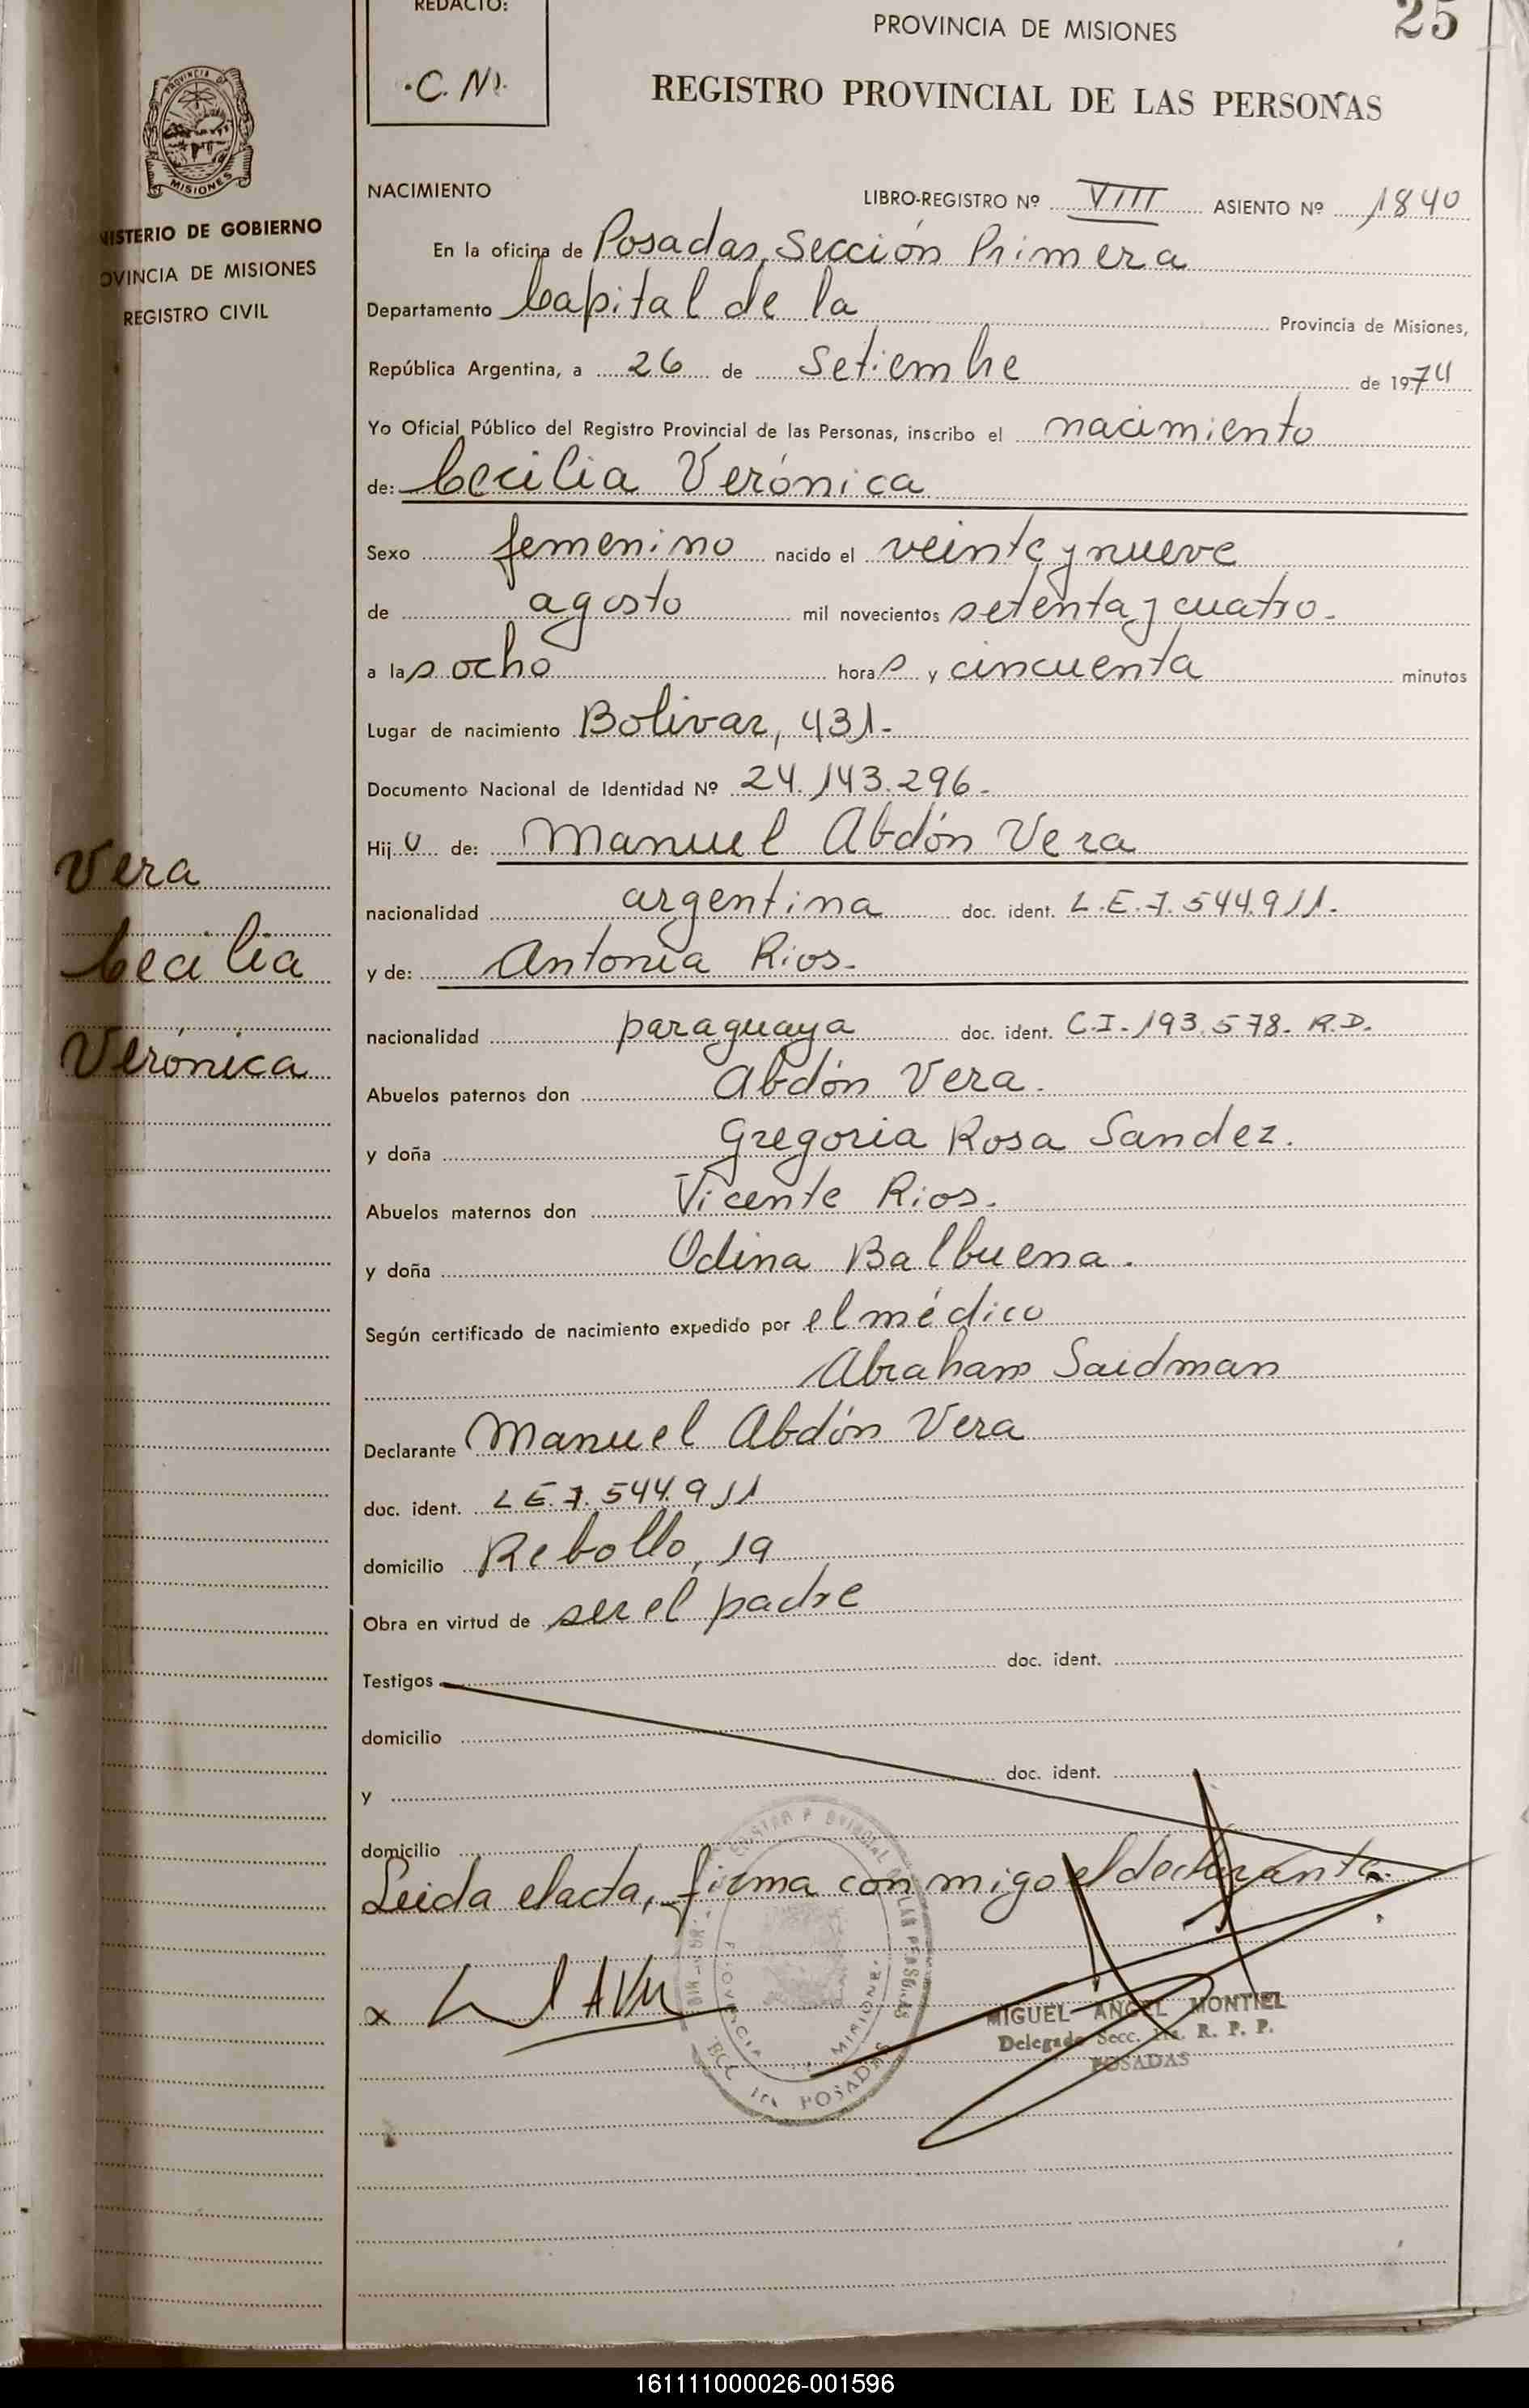 REDACTO:
C. N.
PROVINCIA DE MISIONES
25
REGISTRO PROVINCIAL DE LAS PERSONAS
PROVINCIA DE
MISIONES
NISTERIO DE GOBIERNO
OVINCIA DE MISIONES
REGISTRO CIVIL
NACIMIENTO LIBRO-REGISTRO Nº VIII ASIENTO Nº 1840
En la oficina de Posadas, Sección Primera
Departamento Capital de la Provincia de Misiones,
República Argentina, a 26 de Setiembre de 1974
Yo Oficial Público del Registro Provincial de las Personas, inscribo el nacimiento
de: Cecilia Verónica
Sexo femenino nacido el veinte y nueve
de agosto mil novecientos setenta y cuatro.
a las ocho horas y cincuenta minutos
Lugar de nacimiento Bolivar, 431.-
Documento Nacional de Identidad Nº 24.143.296.-
Hij a de: Manuel Abdón Vera
nacionalidad argentina doc. ident. L.E. 7.544.911.
y de: Antonia Rios.
nacionalidad paraguaya doc. ident. C.I. 193.578. R.D.
Abuelos paternos don Abdón Vera.
y doña Gregoria Rosa Sandez.
Abuelos maternos don Vicente Rios.
y doña Odina Balbuena.
Según certificado de nacimiento expedido por el médico
Abraham Saidman
Declarante Manuel Abdón Vera
doc. ident. L E. 7. 544.911
domicilio Rebollo, 19
Obra en virtud de ser el padre
Testigos doc. ident.
domicilio
y doc. ident.
domicilio
Leida el acta, firma con migo el declarante.
x
MIGUEL ANGEL MONTIEL
Delegado Secc. 1ra. R. P. P.
POSADAS
Vera
Cecilia
Verónica
161111000026-001596